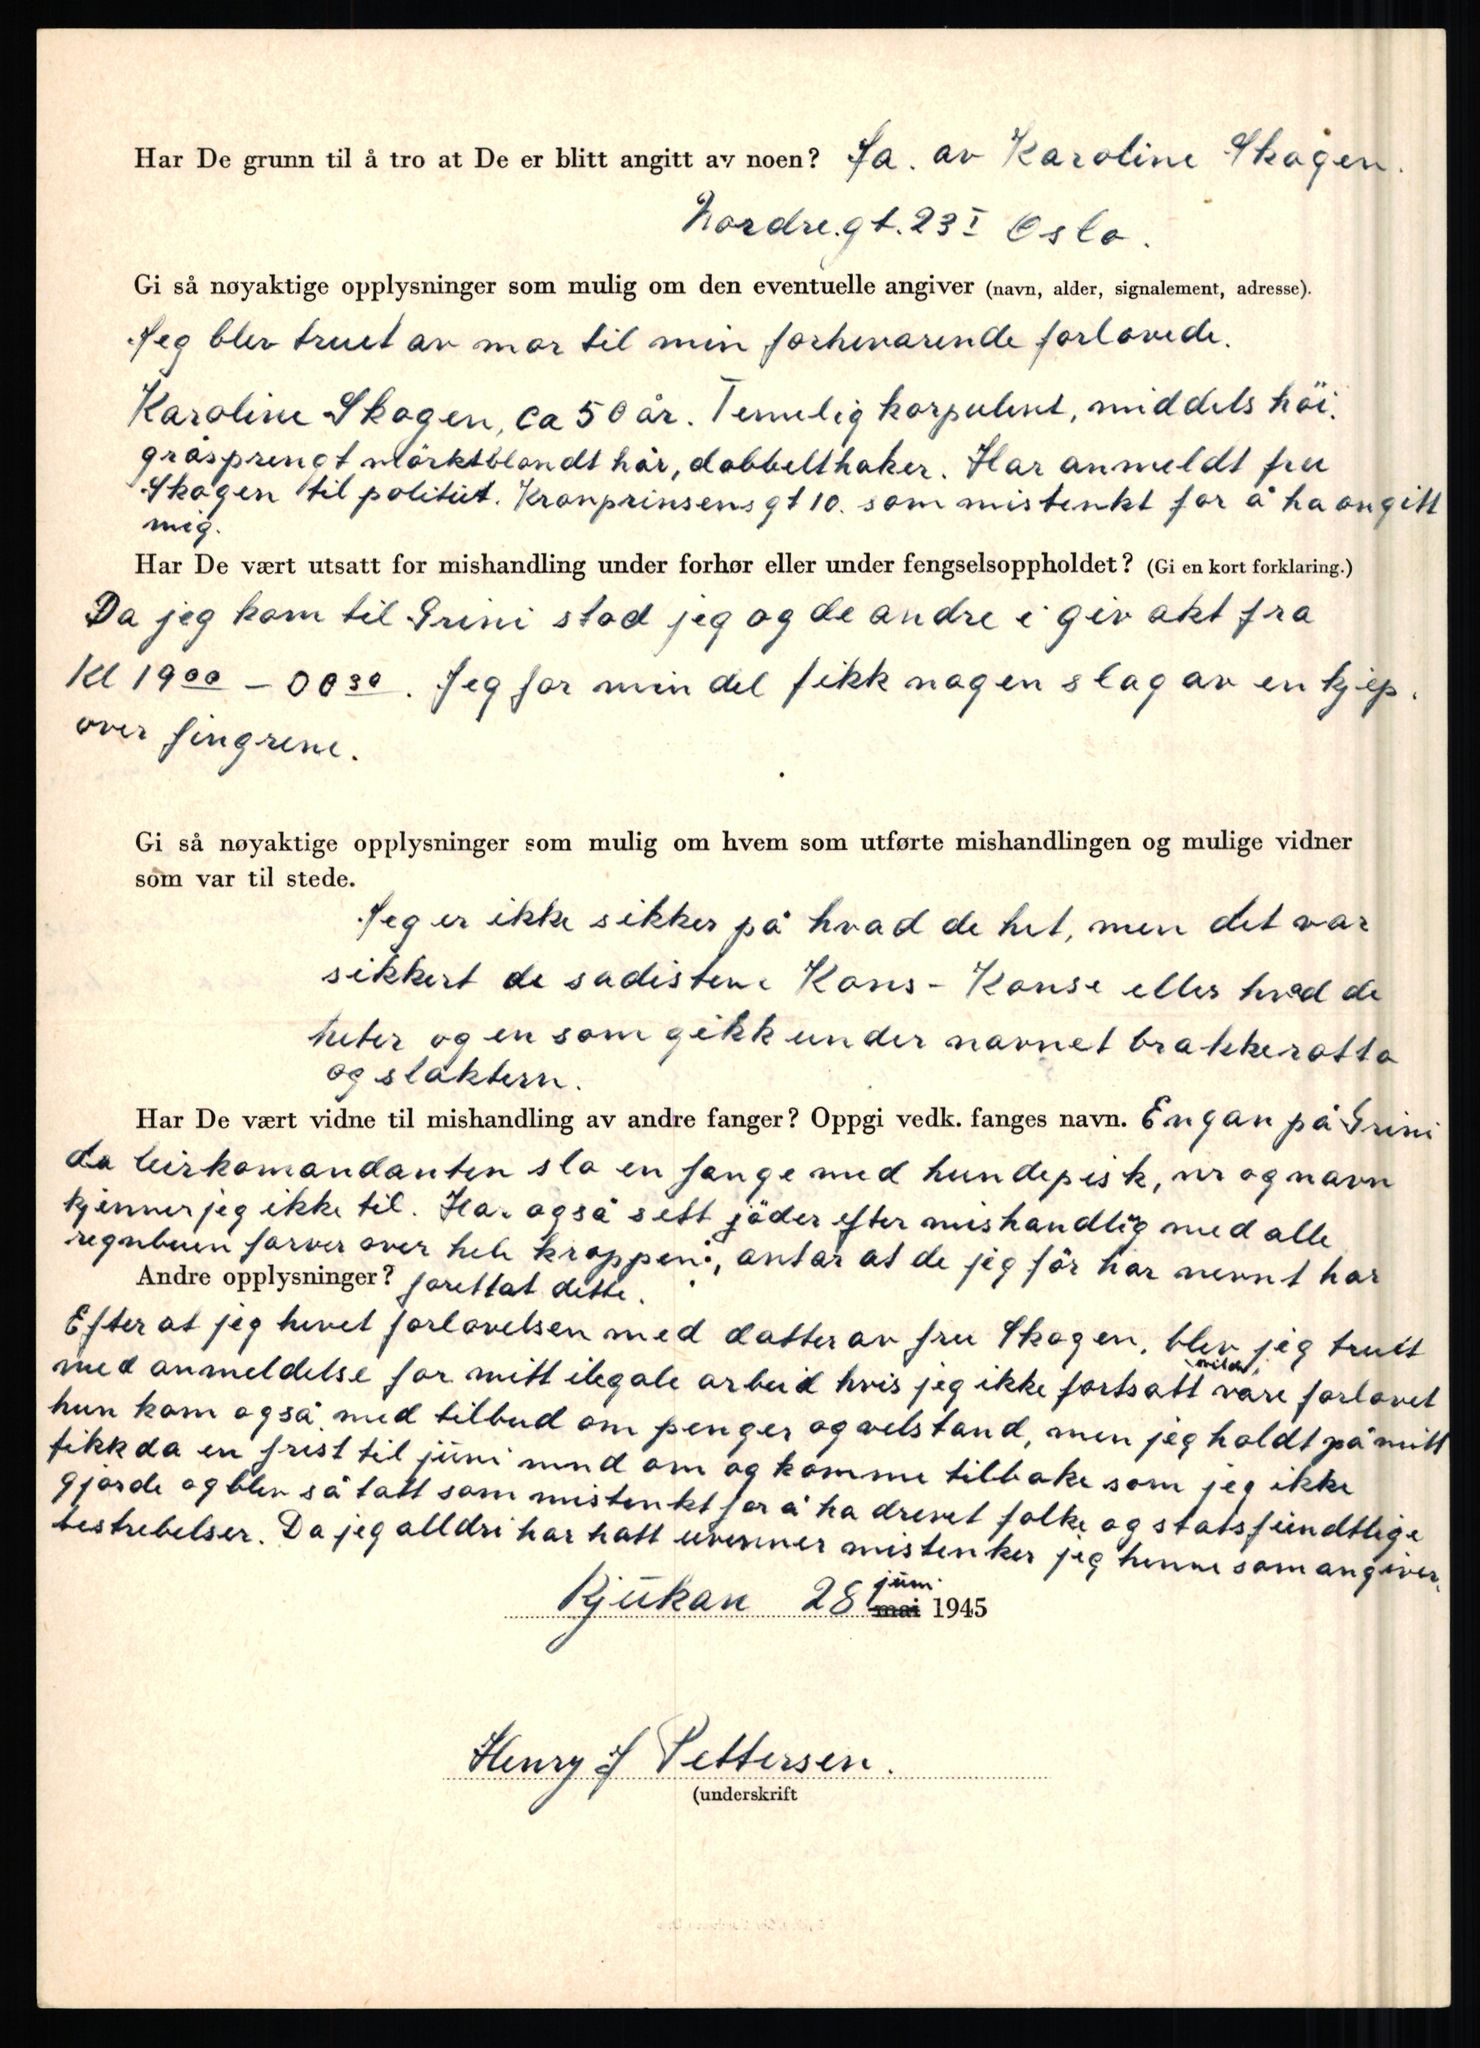 Har De grunn til å tro at De er blitt angitt av noen? Ja. av Karoline Skogen.
Nordre.gt. 23 I Oslo.
Gi så nøyaktige opplysninger som mulig om den eventuelle angiver (navn, alder, signalement, adresse).
Jeg blev truet av mor til min forhevarende forlovede.
Karoline Skogen, ca 50 år. Temelig korpulent, middels höi.
gråsprengt mörktblondt hår, dobbelthaker. Har anmeldt fru
Skogen til politiet. Kronprinsensgt 10. som mistenkt for å ha angitt
mig.
Har De vært utsatt for mishandling under forhør eller under fengselsoppholdet? (Gi en kort forklaring.)
Da jeg kom til Grini stod jeg og de andre i giv akt fra
Kl 19⁰⁰ – 00³⁰. Jeg for min del fikk nogen slag av en kjep.
over fingrene.
Gi så nøyaktige opplysninger som mulig om hvem som utførte mishandlingen og mulige vidner
som var til stede.
Jeg er ikke sikker på hvad de het, men det var
sikkert de sadistene Kons - Konse eller hvad de
heter og en som gikk under navnet brakkerotta
og slaktern.
Har De vært vidne til mishandling av andre fanger? Oppgi vedk. fanges navn. Engan på Grini
da leirkomandanten slo en fange med hundepisk, nr og navn
kjenner jeg ikke til. Har også sett jöder efter mishandlig med alle
regnbuen farver over hele kroppen, antar at de jeg för har nevnt har
Andre opplysninger? forettat dette.
Efter at jeg hevet forlovelsen med datter av fru Skogen, blev jeg truet
med anmeldelse for mitt ilegale arbeid hvis jeg ikke fortsatt vilde være forlovet
hun kom også med tilbud om penger og velstand, men jeg holdt på mitt
fikk da en frist til jüni mnd om og komme tilbake som jeg ikke
gjorde og blev så tatt som mistenkt for å ha drevet folke og statsfiendtlige
bestrebelser. Da jeg alldri har hatt uvenner mistenker jeg henne som angiver.
Rjükan 28 juni mai 1945
Henry J Pettersen.
(underskrift